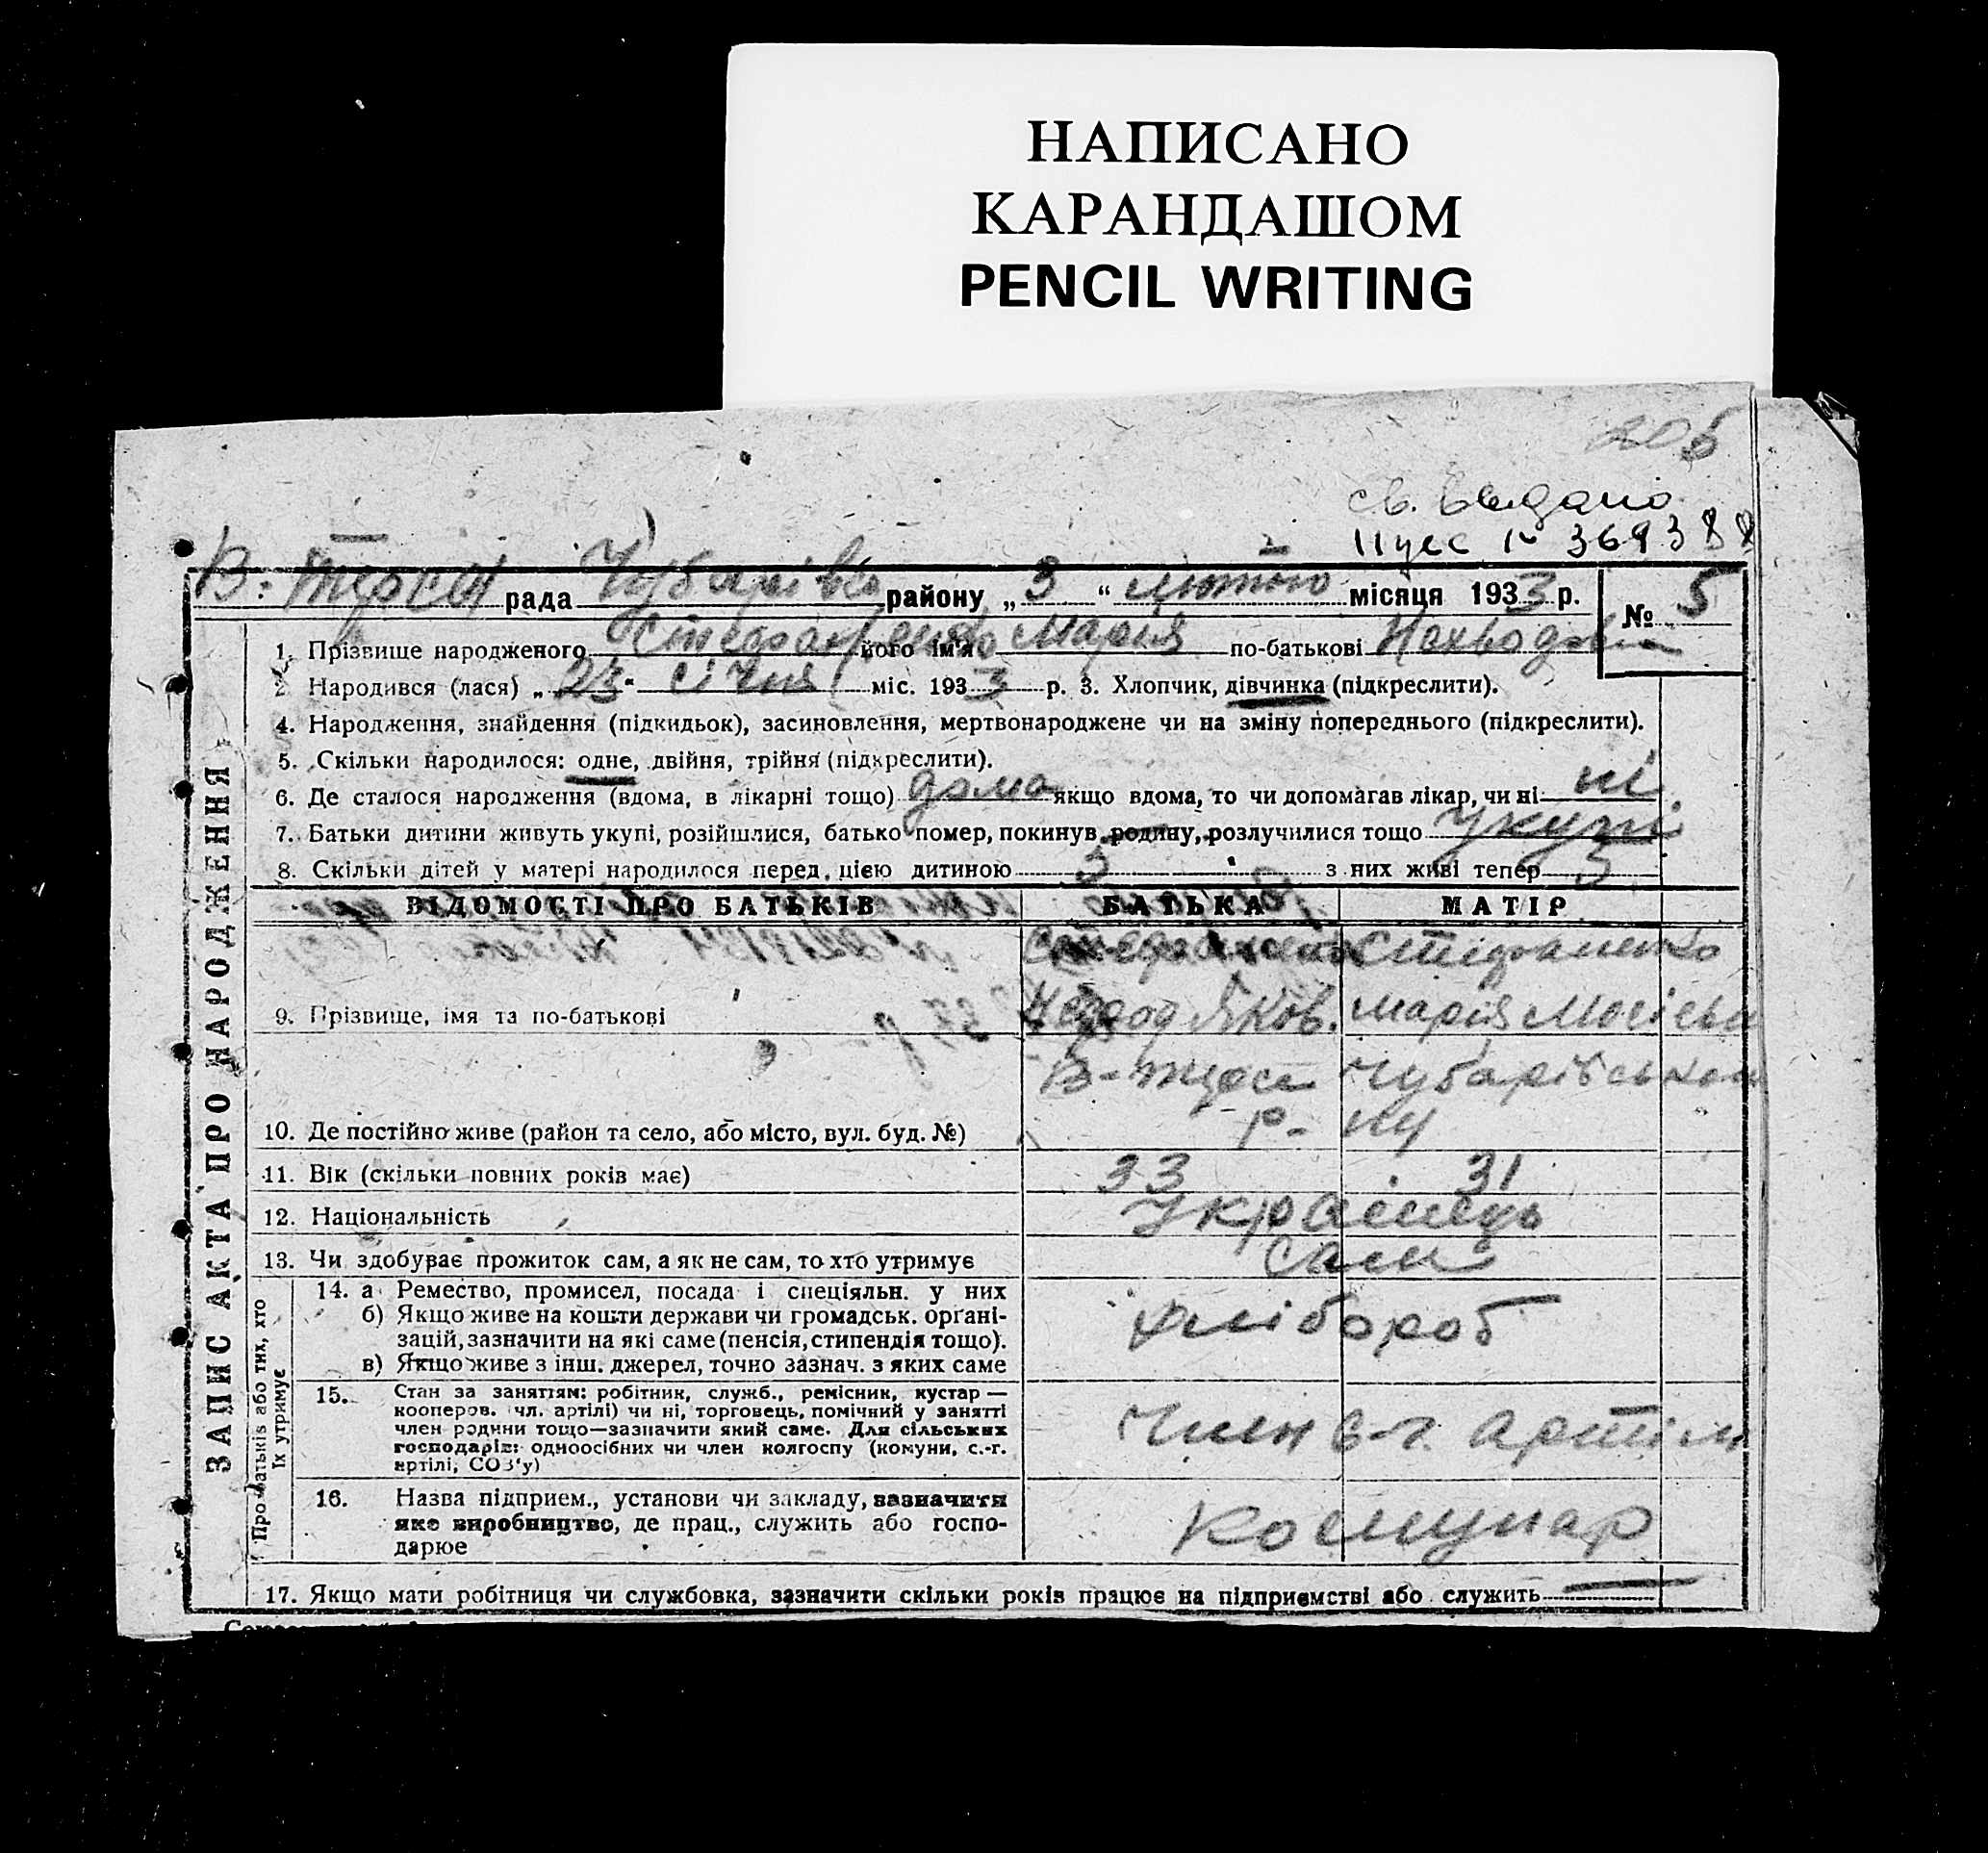 НАПИСАНО
КАРАНДАШОМ
PENCIL WRITING
205
св. выдано
№ 369388
В. Терсян рада Чубарівсь району „3“ лютого місяця 1933 р. № 5
1. Прізвище народженого Стефаненко його ім'я Марія по-батькові
2. Народився (лася) „23“ січня міс. 1933 р. 3. Хлопчик, дівчинка (підкреслити).
4. Народження, знайдення (підкидьок), засиновлення, мертвонароджене чи на зміну попереднього (підкреслити).
5. Скільки народилося: одне, двійня, трійня (підкреслити).
6. Де сталося народження (вдома, в лікарні тощо) дома якщо вдома, то чи допомагав лікар, чи ні ні
7. Батьки дитини живуть укупі, розійшлися, батько помер, покинув родину, розлучилися тощо укупі
8. Скільки дітей у матері народилося перед цією дитиною 3 з них живі тепер 3
ЗАПИС АКТА ПРО НАРОДЖЕННЯ
ВІДОМОСТІ ПРО БАТЬКІВ БАТЬКА МАТІР
Стефаненко Стіфаненко
9. Прізвище, імя та по-батькові Яков. Марія Мосієвн
В-Терсян Чубарівського
10. Де постійно живе (район та село, або місто, вул. буд. №) р-ну
11. Вік (скільки повних років має) 33 31
12. Національність Українець
13. Чи здобуває прожиток сам, а як не сам, то хто утримує сами
Про батьків або тих, хто їх утримує
14. а Ремество, промисел, посада і спеціяльн. у них
б) Якщо живе на кошти держави чи громадськ. органі-
зацій, зазначити на які саме (пенсія, стипендія тощо). хлібороб
в) Якщо живе з інш. джерел, точно зазнач. з яких саме
15. Стан за заняттям: робітник, служб., ремісник, кустар —
кооперов. чл. артілі) чи ні, торговець, помічний у занятті
член родини тощо—зазначити який саме. Для сільських Член с-г. артіли
господарів: одноосібних чи член колгоспу (комуни, с.-г.
артілі, СОЗ'у)
16. Назва підприєм., установи чи закладу, зазначити
яке виробництво, де прац., служить або госпо- Комунар
дарює
17. Якщо мати робітниця чи службовка, зазначити скільки років працює на підприємстві або служить —